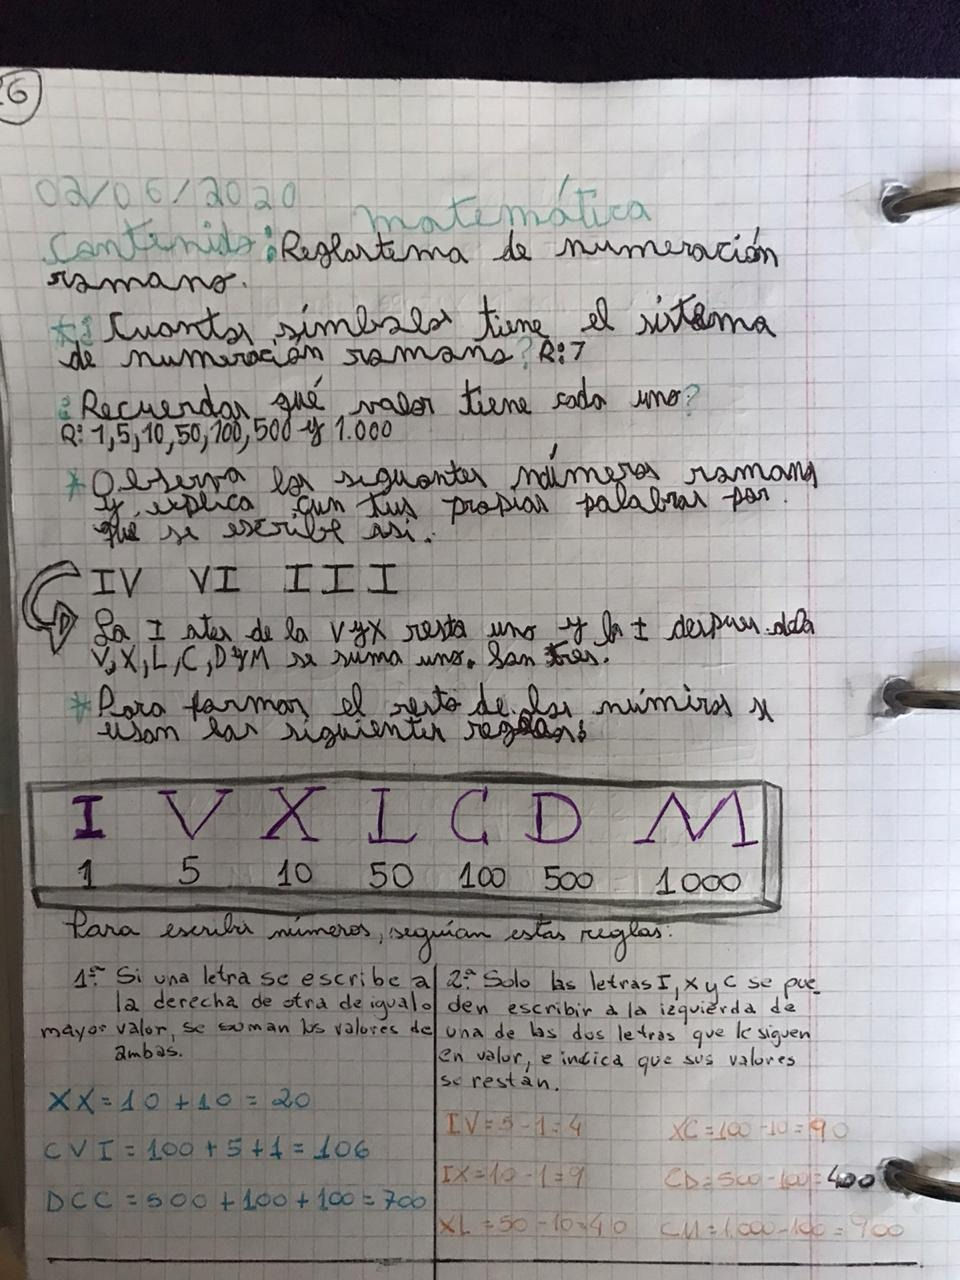 26
02/06/2020
matemática
Contenido: Reglartema de numeración
romano.
*¿Cuantos símbolos tiene el sistema
de numeración romano? R:7
¿Recuerdas qué valor tiene cada uno?
R: 1,5,10,50,100,500 y 1.000
*Observa los siguantes números romans
y explica cun tus propias palabras por
que se escribe asi.
IV VI III
La I ates de la V y X resta uno y la I despues dela
V,X,L,C,D y M se suma uno. Son tres.
*Para formar el resto de los números se
usan las siguientes reglas:
I V X L C D M
1 5 10 50 100 500 1000
Para escribir números, seguían estas reglas:
1ª Si una letra se escribe a
la derecha de otra de igual o
mayor valor, se suman los valores de
ambas.
XX=10+10=20
CVI=100+5+1=106
DCC=500+100+100=700
2ª Solo las letras I, X y C se pue_
den escribir a la izquierda de
una de las dos letras que le siguen
en valor, e indica que sus valores
se restan.
IV=5-1=4 XC=100-10=90
IX=10-1=9 CD=500-100=400
XL=50-10=40 CM=1.000-100=900